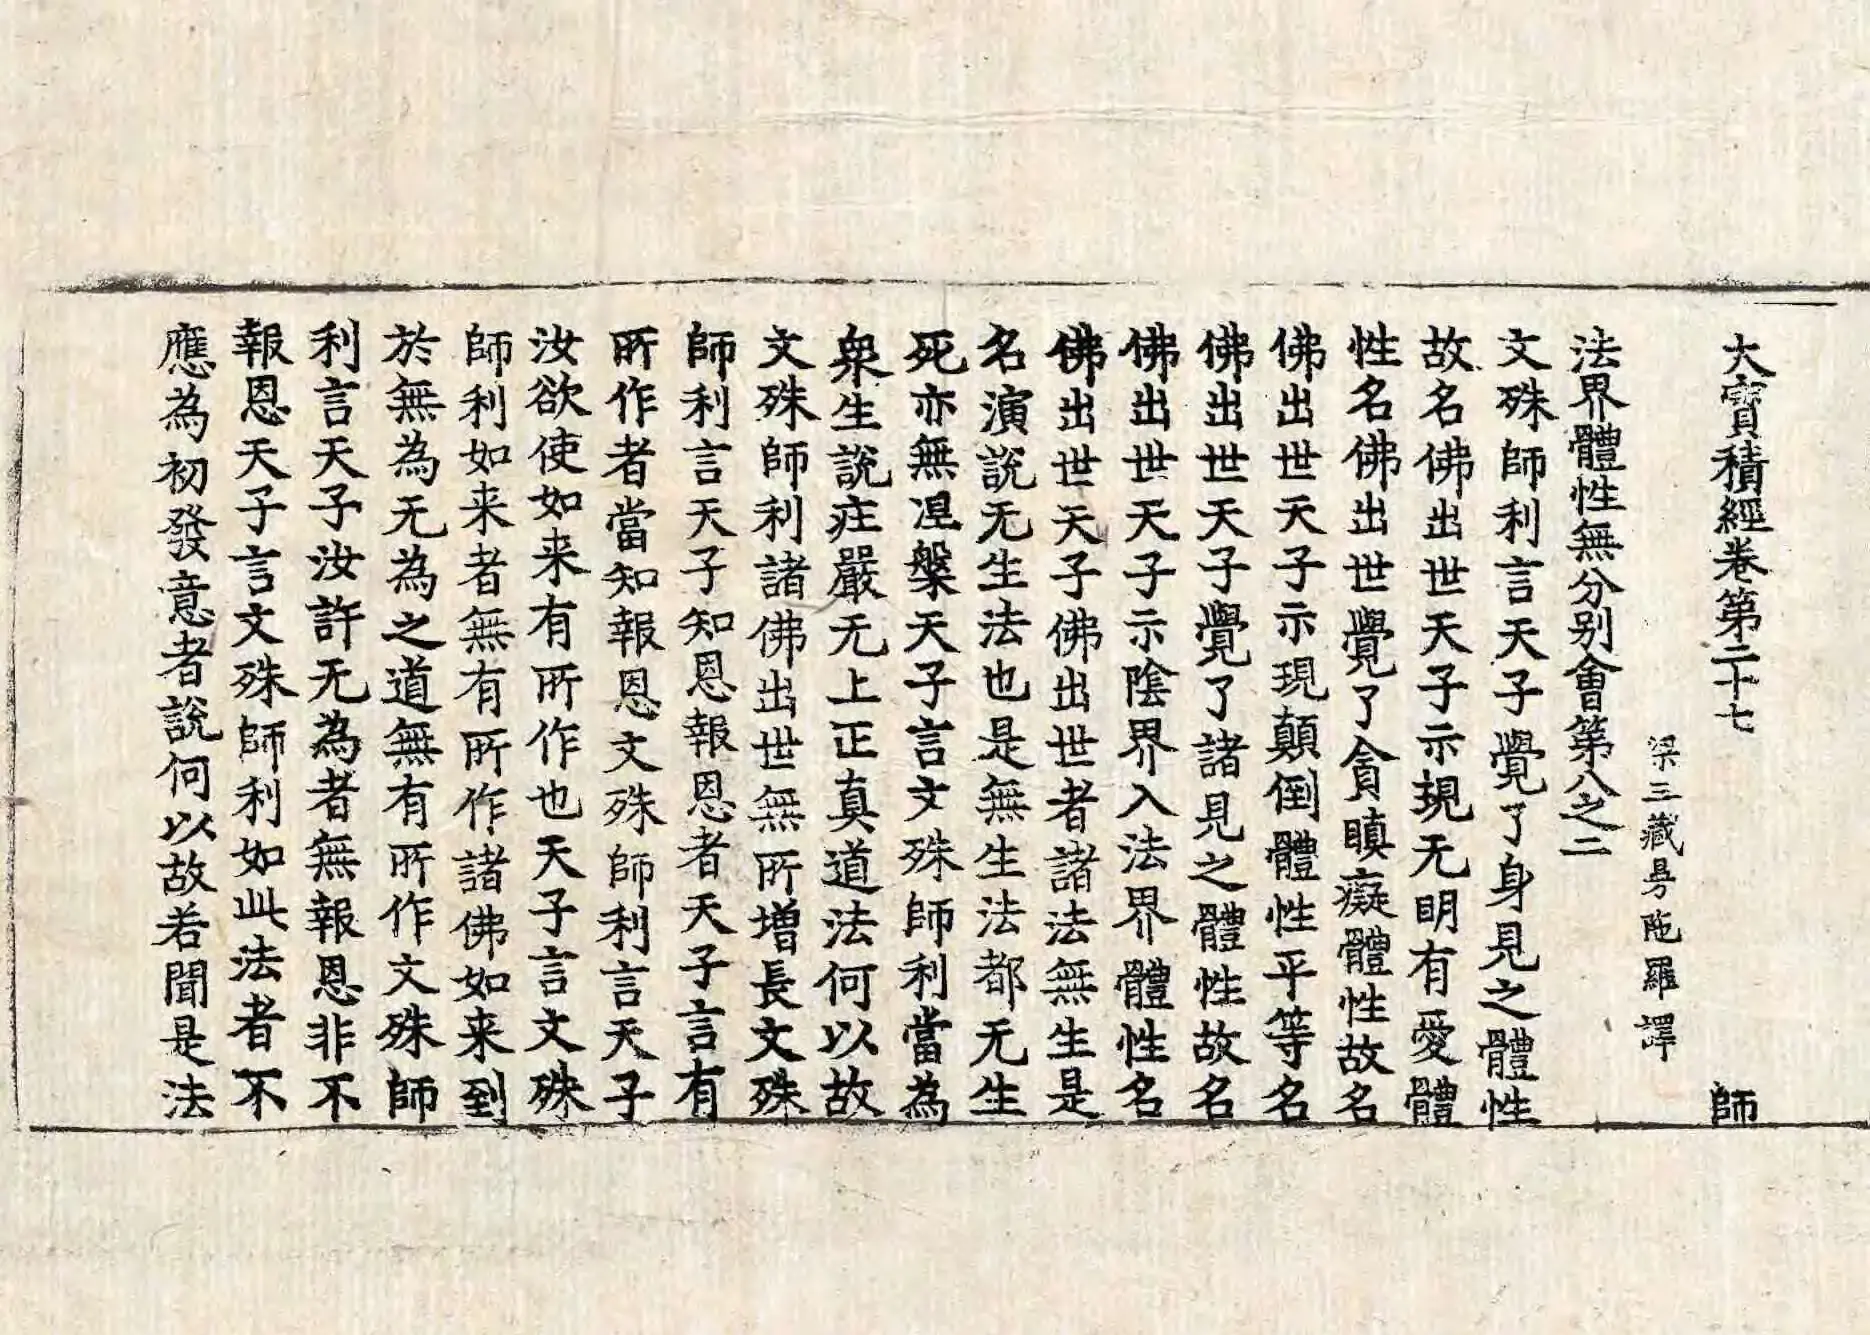 大寶積經卷第二十七 師
梁三藏曼陁羅譯
法界體性無分别會第八之二
文殊師利言天子覺了身見之體性
故名佛出世天子示現无明有愛體
性名佛出世覺了貪瞋癡體性故名
佛出世天子示現顛倒體性平等名
佛出世天子覺了諸見之體性故名
佛出世天子示陰界入法界體性名
佛出世天子佛出世者諸法無生是
名演說无生法也是無生法都无生
死亦無涅槃天子言文殊師利當為
衆生說庄嚴无上正真道法何以故
文殊師利諸佛出世無所增長文殊
師利言天子知恩報恩者天子言有
所作者當知報恩文殊師利言天子
汝欲使如来有所作也天子言文殊
師利如来者無有所作諸佛如来到
於無為无為之道無有所作文殊師
利言天子汝許无為者無報恩非不
報恩天子言文殊師利如此法者不
應為初發意者說何以故若聞是法